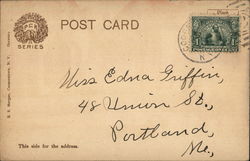 POST CARD
SERIES
Miss Edna Griffin,
48 Union St.,
Portland,
Me.,
This side for the address.